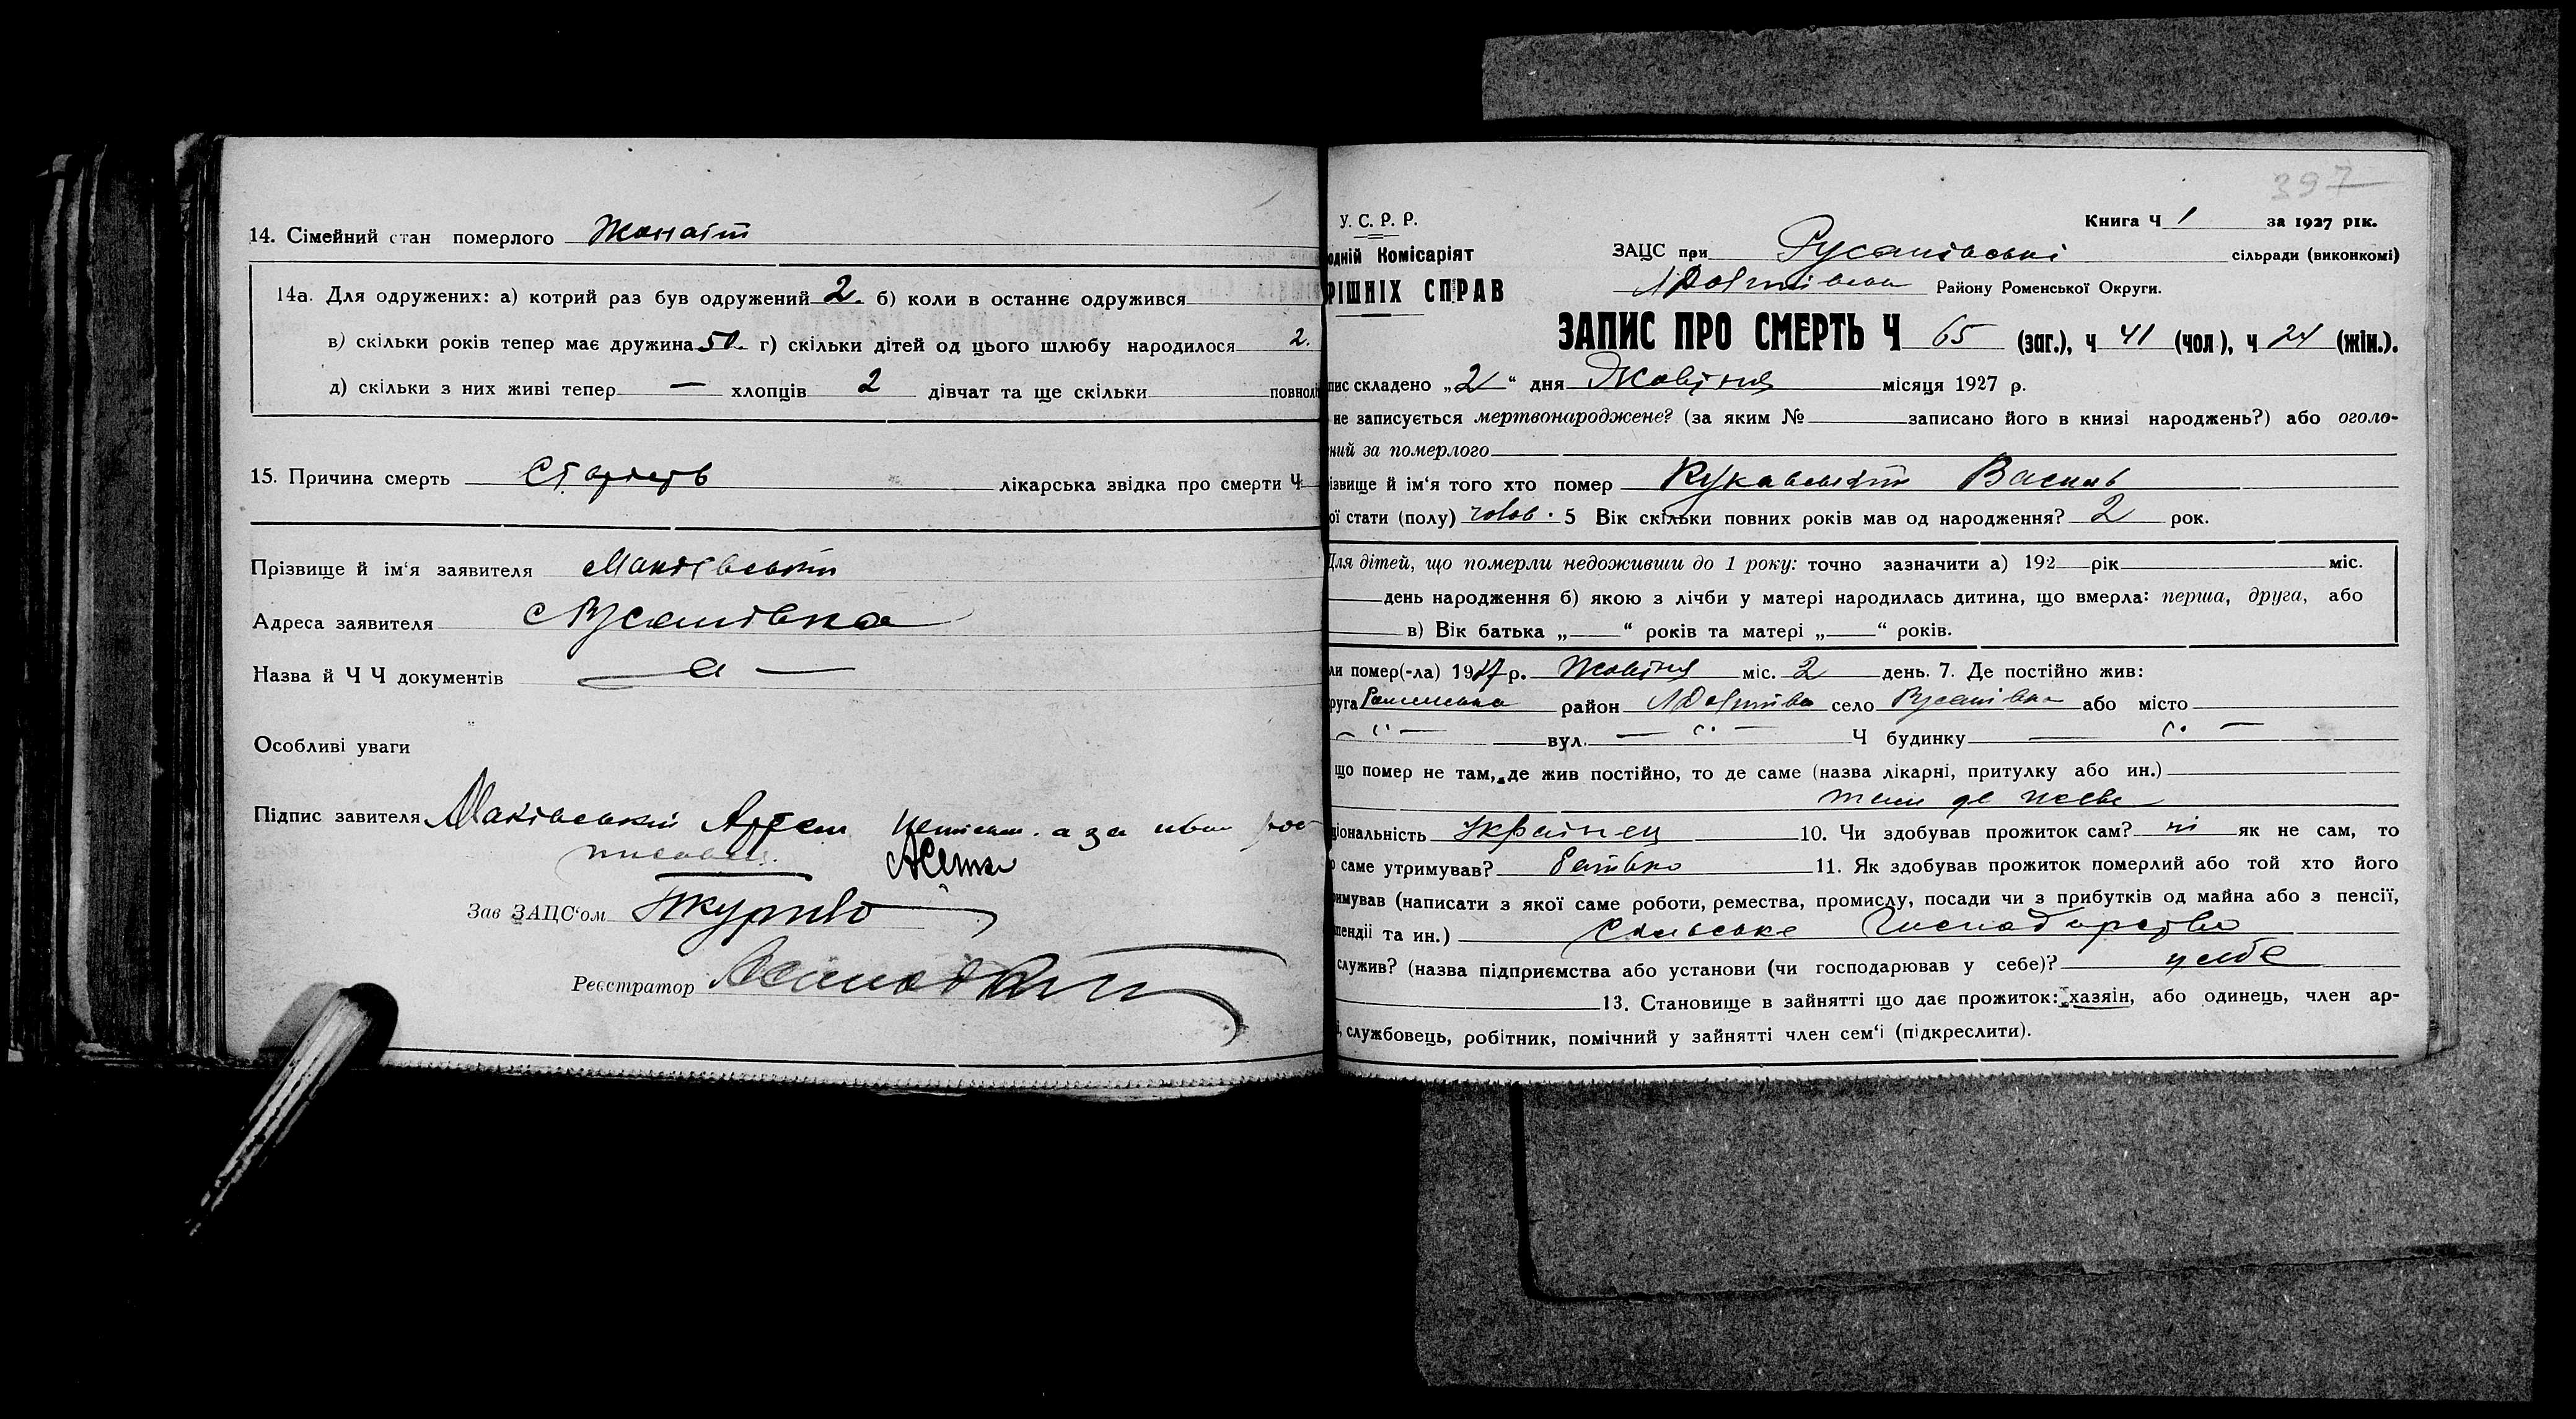 14. Сімейний стан померлого Жонатт
14а. Для одружених: а) котрий раз був одружений 2. б) коли в останнє одружився
в) скільки років тепер має дружина 50 г) скільки дітей од цього шлюбу народилося 2.
д) скільки з них живі тепер — хлопців 2 дівчат та ще скільки повнолі
15. Причина смерть Старість лікарська звідка про смерти Ч
Прізвище й ім'я заявителя Маківський
Адреса заявителя с Русанівка
Назва й Ч Ч документів
Особливі уваги
Підпис завителя Маківський Артем а за
Зав ЗАЦС'ом
Реєстратор
397
У. С. Р. Р.
одній Комісаріят
РІШНІХ СПРАВ
Книга Ч 1 за 1927 рік.
ЗАЦС при Русанівські сільради (виконкомі)
Району Роменської Округи.
ЗАПИС ПРО СМЕРТЬ Ч 65 (заг.), ч 41 (чол), ч 24 (жін.).
пис складено „2" дня Жовтня місяця 1927 р.
не записується мертвонароджене? (за яким № записано його в книзі народжень?) або оголо-
ний за померлого
ізвище й ім'я того хто помер Василь
ої стати (полу) чолов. 5 Вік скільки повних років мав од народження? 2 рок.
Для дітей, що померли недоживши до 1 року: точно зазначити а) 192 рік міс.
день народження б) якою з лічби у матері народилась дитина, що вмерла: перша, друга, або
в) Вік батька „ " років та матері „ " років.
ли помер(-ла) 1927 р. Жовтня міс. 2 день. 7. Де постійно жив:
руга Роменська район село Русанівка або місто
вул. Ч будинку
що помер не там, де жив постійно, то де саме (назва лікарні, притулку або ин.)
там де
ціональність Українец 10. Чи здобував прожиток сам? ні як не сам, то
о саме утримував? батько 11. Як здобував прожиток померлий або той хто його
имував (написати з якої саме роботи, ремества, промислу, посади чи з прибутків од майна або з пенсії,
пендії та ин.) Сильське Господарство
служив? (назва підприємства або установи (чи господарював у себе)? у себе
13. Становище в зайнятті що дає прожиток: хазяін, або одинець, член ар-
і, службовець, робітник, помічний у зайнятті член сем'ї (підкреслити).